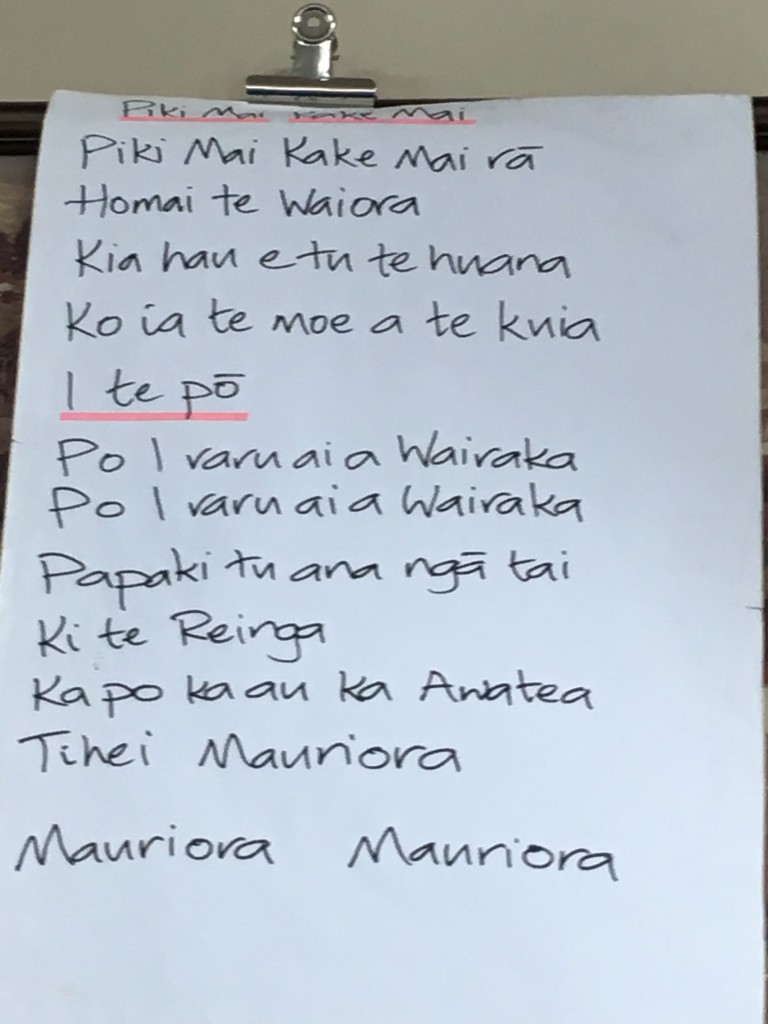 Piki Mai Kake Mai
Piki Mai Kake Mai rā
Homai te Waiora
Kia hau e tu te huana
Ko ia te moe a te kuia
I te pō
Po I raru ai a Wairaka
Po I raru ai a Wairaka
Papaki tu ana ngā tai
Ki te Reinga
Ka po ka au ka Awatea
Tihei Mauriora
Mauriora Mauriora